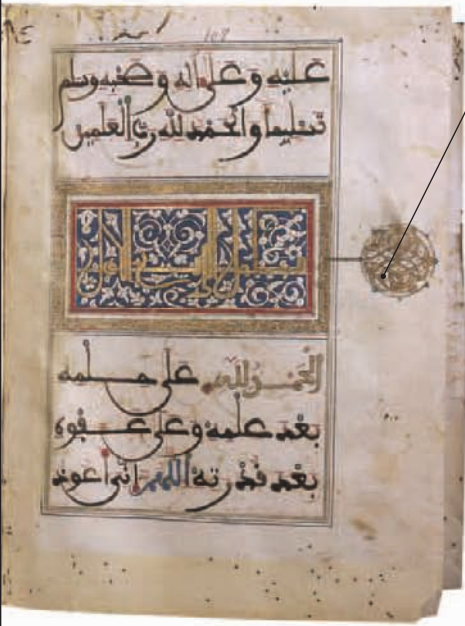 108
عليه وعلى اله وصحبه وسلم
تسليما والحمد لله رب العلمين
الحمد لله على حلمه
بعد علمه وعلى عفوه
بعد قدرته اللهم اني اعوذ